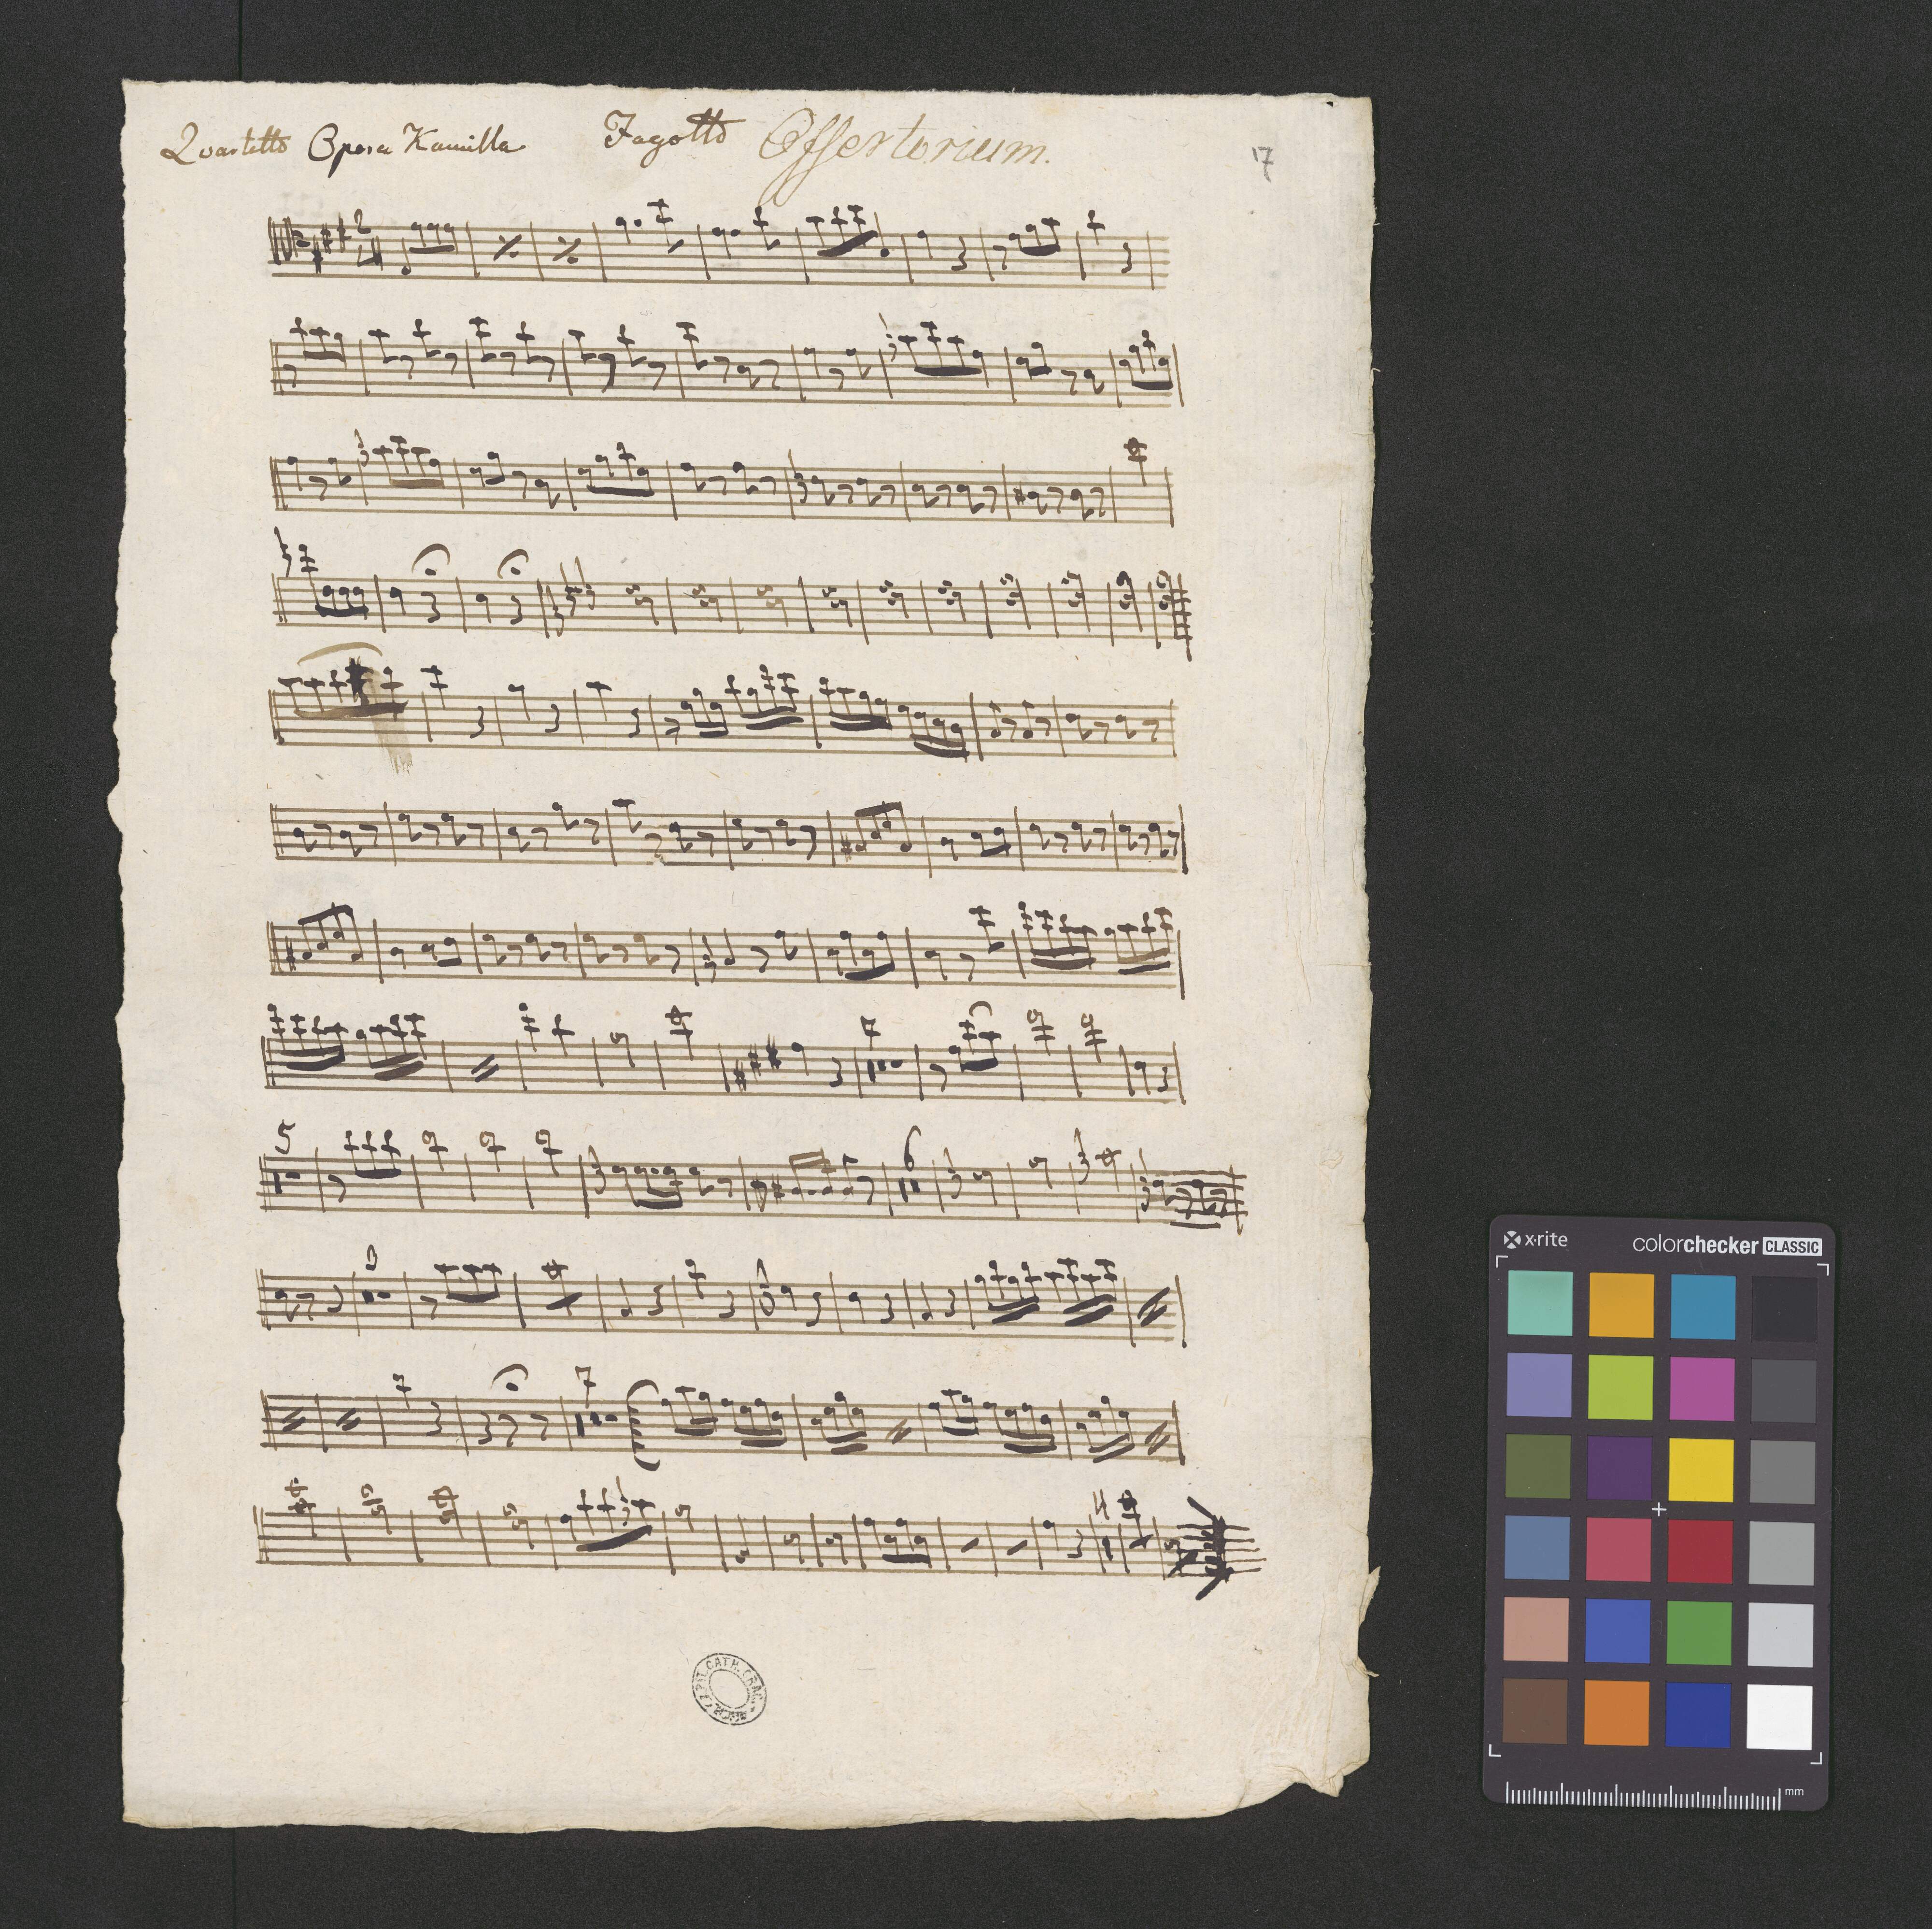 Quartetto Opera Kamilla Fagotto Offertorium. 17
2
7
5
6
3
7
4
CAPIT. CATH. CRAC.
x·rite colorchecker CLASSIC
mm